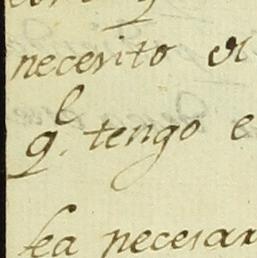 necesito el
q.^l tengo e
sea necesar